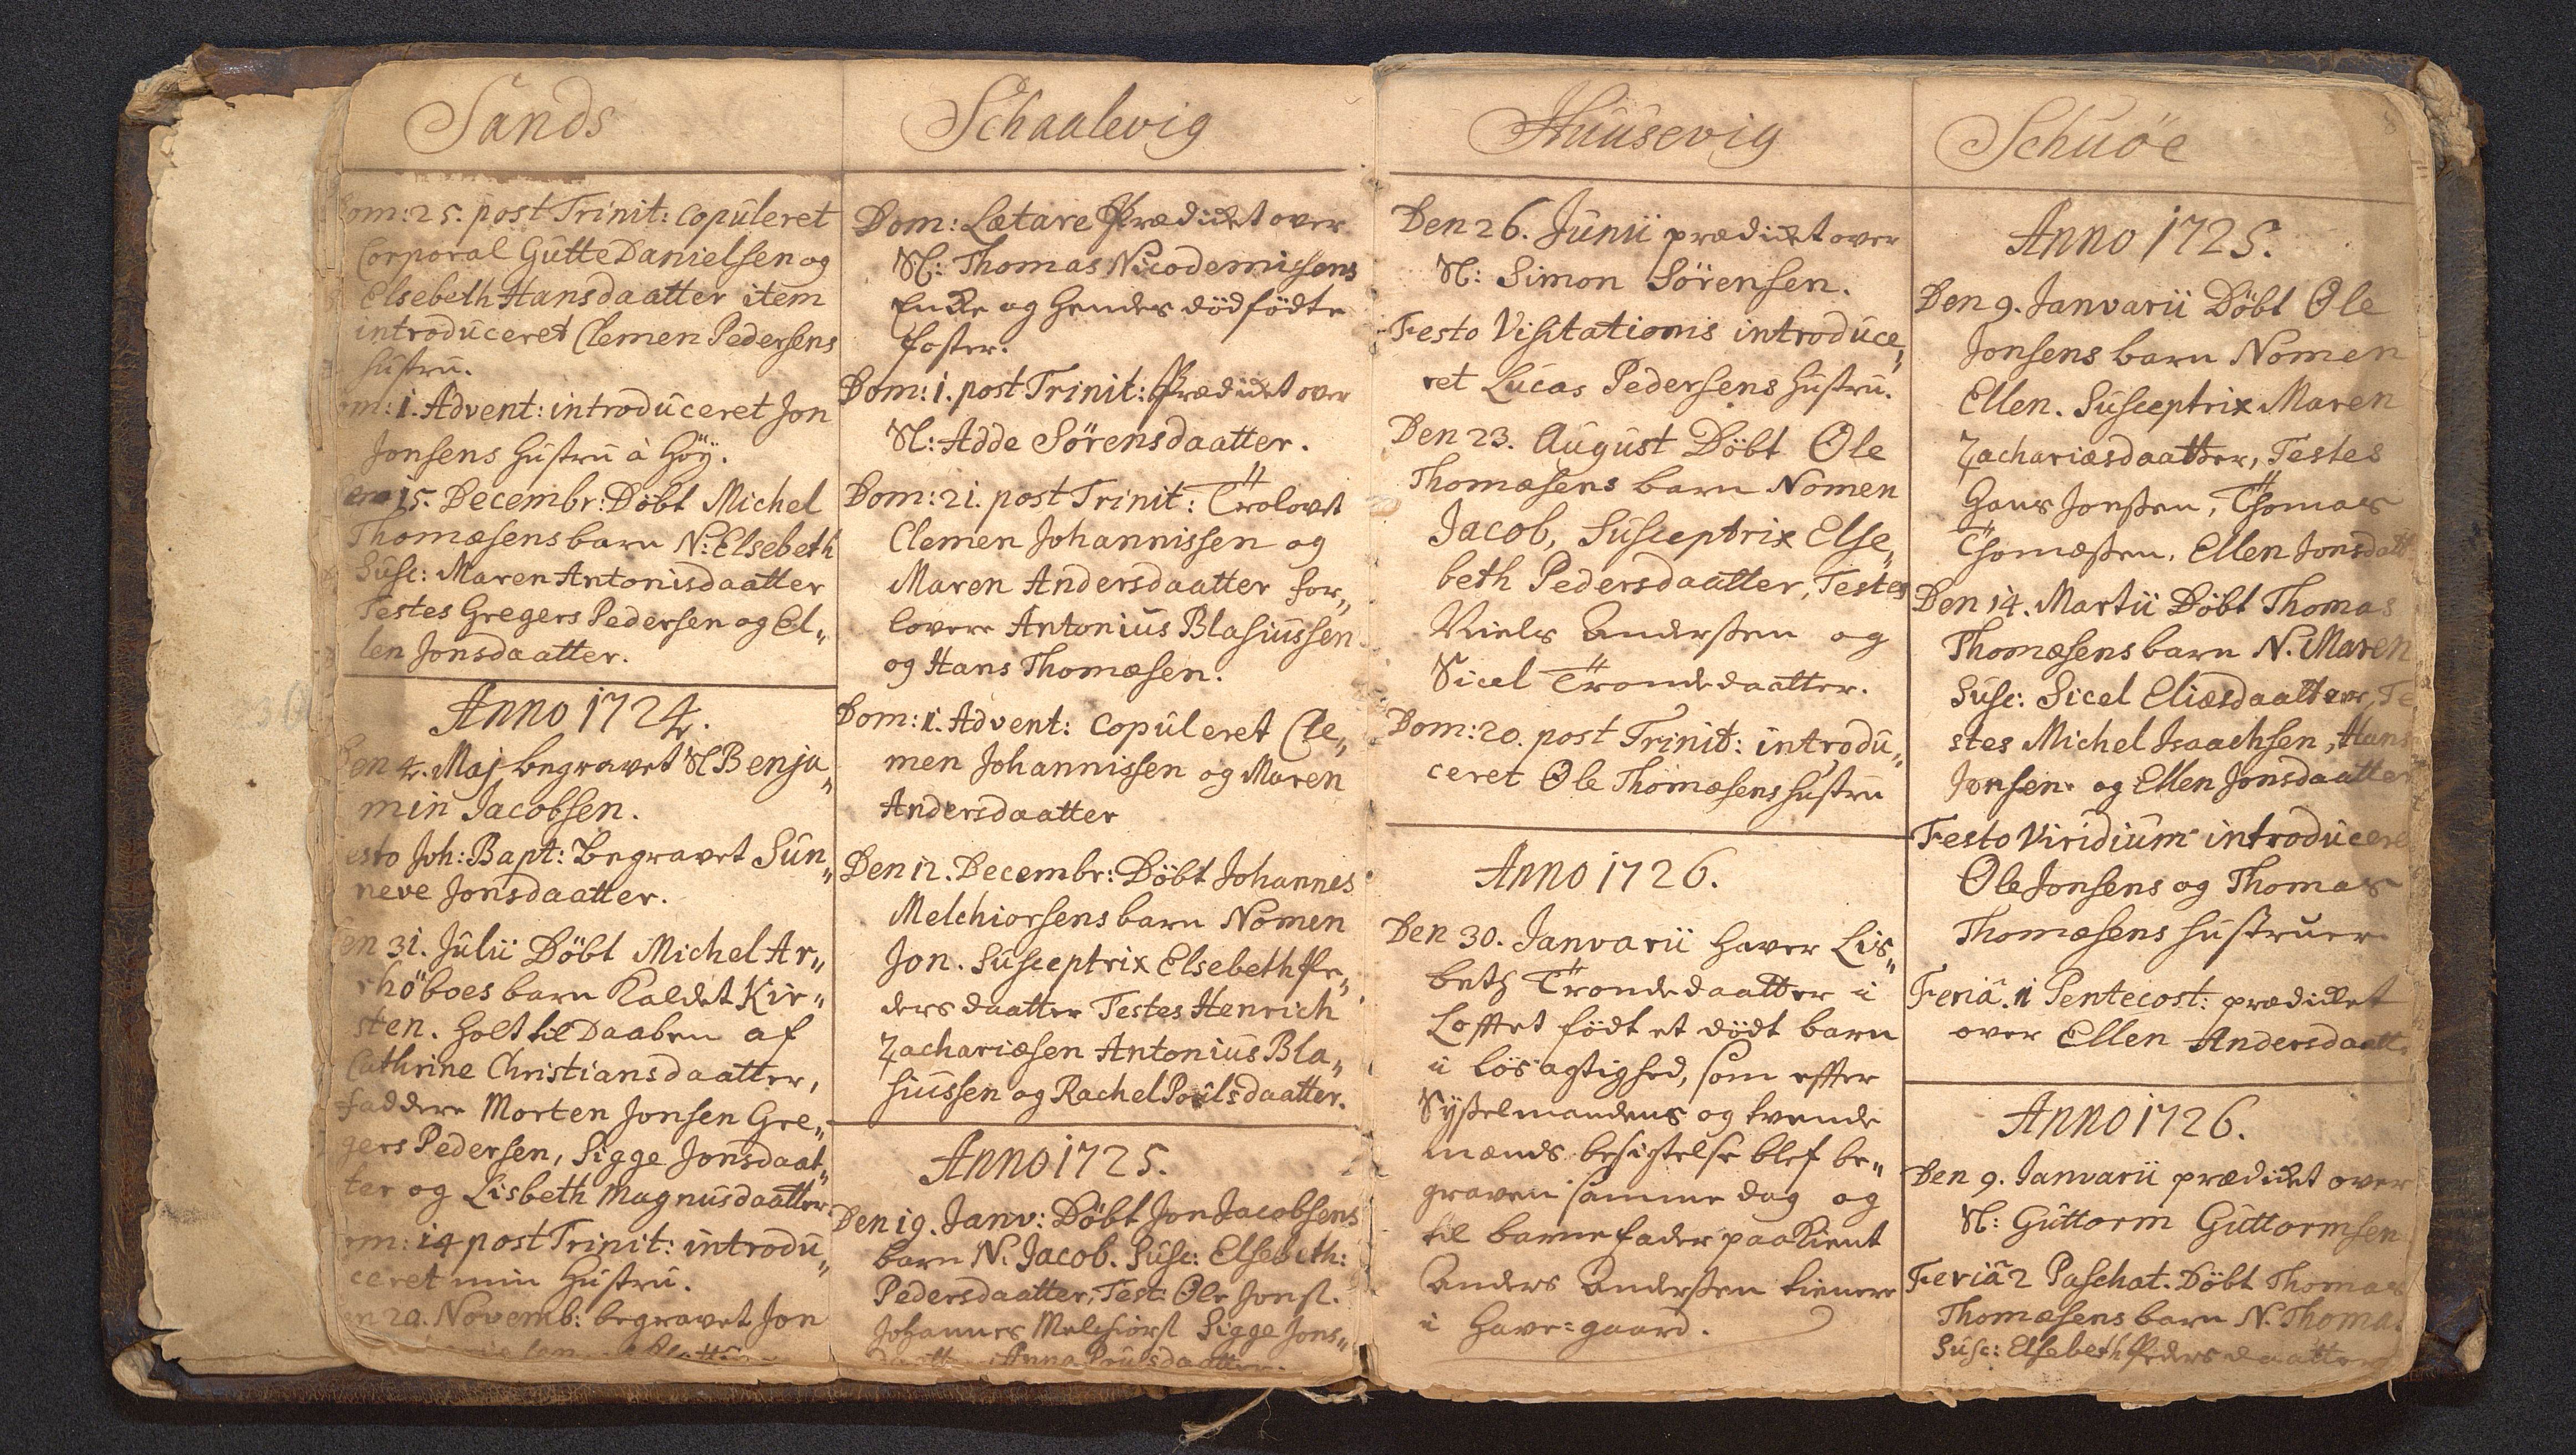 Sands
Dom: 25. post Trinit: copuleret
Corporal Gutte Danielsen og
Elsebeth Hansdaatter item
introduceret Clemen Pedersens
hustru.
Dom: 1. Advent: introduceret Jon
Jonsens hustru à Höÿ.
Den 15. Decembr: Döbt Michel
Thomæsens barn N: Elsebeth
Susc: Maren Antonisdaatter
Testes Gregers Pedersen og El„
len Jonsdaatter.
Anno 1724.
Den 4. Maj begravet Sl Benja„
min Jacobsen.
Festo Joh: Bapt: begravet Sün„
neve Jonsdaatter.
Den 31. Julii Döbt Michel Ar„
rhöboes barn kaldet Kir„
sten. holt til Daaben af
Cathrine Christiansdaatter,
faddere Morten Jonsen Gre„
gers Pedersen, Sigge Jonsdaat„
ter og Lisbeth Magnusdaatter
Dom: 14 post Trinit: introdu„
ceret min hustru.
Novemb: begravet Jon
Schaalevig
Dom: Lætare Prædicket over
Sl: Thomas Nicodemissens
Encke og hendes dödfödte
foster.
Dom: 1. post Trinit: Prædicket over
Sl: Adde Sörensdaatter.
Dom: 21. post Trinit: Trolovet
Clemen Johannissen og
Maren Andersdaatter for„
lovere Antonius Blasiussen
og Hans Thomæsen.
Dom: 1. Advent: copuleret Cle„
men Johannissen og Maren
Andersdaatter
Den 12. Decembr: Döbt Johannes
Melchiorsens barn Nomen
Jon. Susceptrix Elsebeth Pe„
dersdaatter Testes Henrich
Zachariæsen Antonius Bla„
siussen og Rachel Poulsdaatter.
Anno 1725.
Den 19. Janv: Döbt Jon Jacobsens
barn N. Jacob. Susc: Elsebeth:
Pedersdaatter, Test: Ole Jons.
Johannes Melchiors. Sigge Jons„
daatt Anna Poulsdaatter.
Huusevig
Den 26. Junii prædicket over
Sl: Simon Sörensen.
Festo Visitationis introduce„
ret Lucas Pedersens hustru.
Den 23. August Döbt Ole
Thomæsens barn Nomen
Jacob, Susceptrix Else„
beth Pedersdaatter, Testes
Niels Andersen og
Sicel Trondsdaatter.
Dom: 20. post Trinit: introdu„
ceret Ole Thomæsens hustru
Anno 1726.
Den 30. Janvarii haver Lis„
beth Trondsdaatter i
Lofftet födt et dödt barn
i lösagtighed, som effter
Sysselmandens og tvende
mænds besigtelse blef be„
graven samme dag og
til barnefader paakient
Anders Andersen tienere
i Have=gaard.
Schuöe
8
Anno 1725.
Den 9. Janvarii Döbt Ole
Jonsens barn Nomen
Ellen. Susceptrix Maren
Zachariæsdaatter, Testes
Hans Jonsen, Thomas
Thomæsen, Ellen Jonsdatt
Den 14. Martii Döbt Thomas
Thomæsens barn N. Maren
Susc: Sicel Eliæsdaatter, Te
stes Michel Isaachsen, Hans
Jonsen og Ellen Jonsdaatter
Festo Viridium introducere
Ole Jonsens og Thomas
Thomæsens hustruer
Feriâ. 1 Pentecost: prædicket
over Ellen Andersdaatt
Anno 1726.
Den 9. Janvarii prædicket over
Sl: Guttorm Guttormsen
Feriâ 2 Paschat. Döbt Thomas
Thomæsens barn N. Thomas
Susc: Elsebeth Pedersdaatter